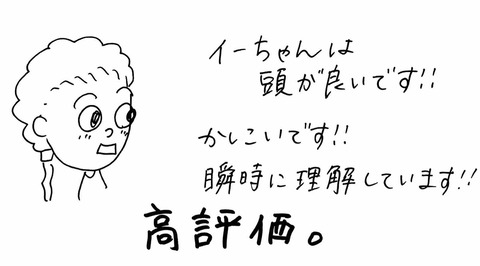 イーちゃんは
頭が良いです!!
かしこいです!!
瞬時に理解しています!!
高評価。